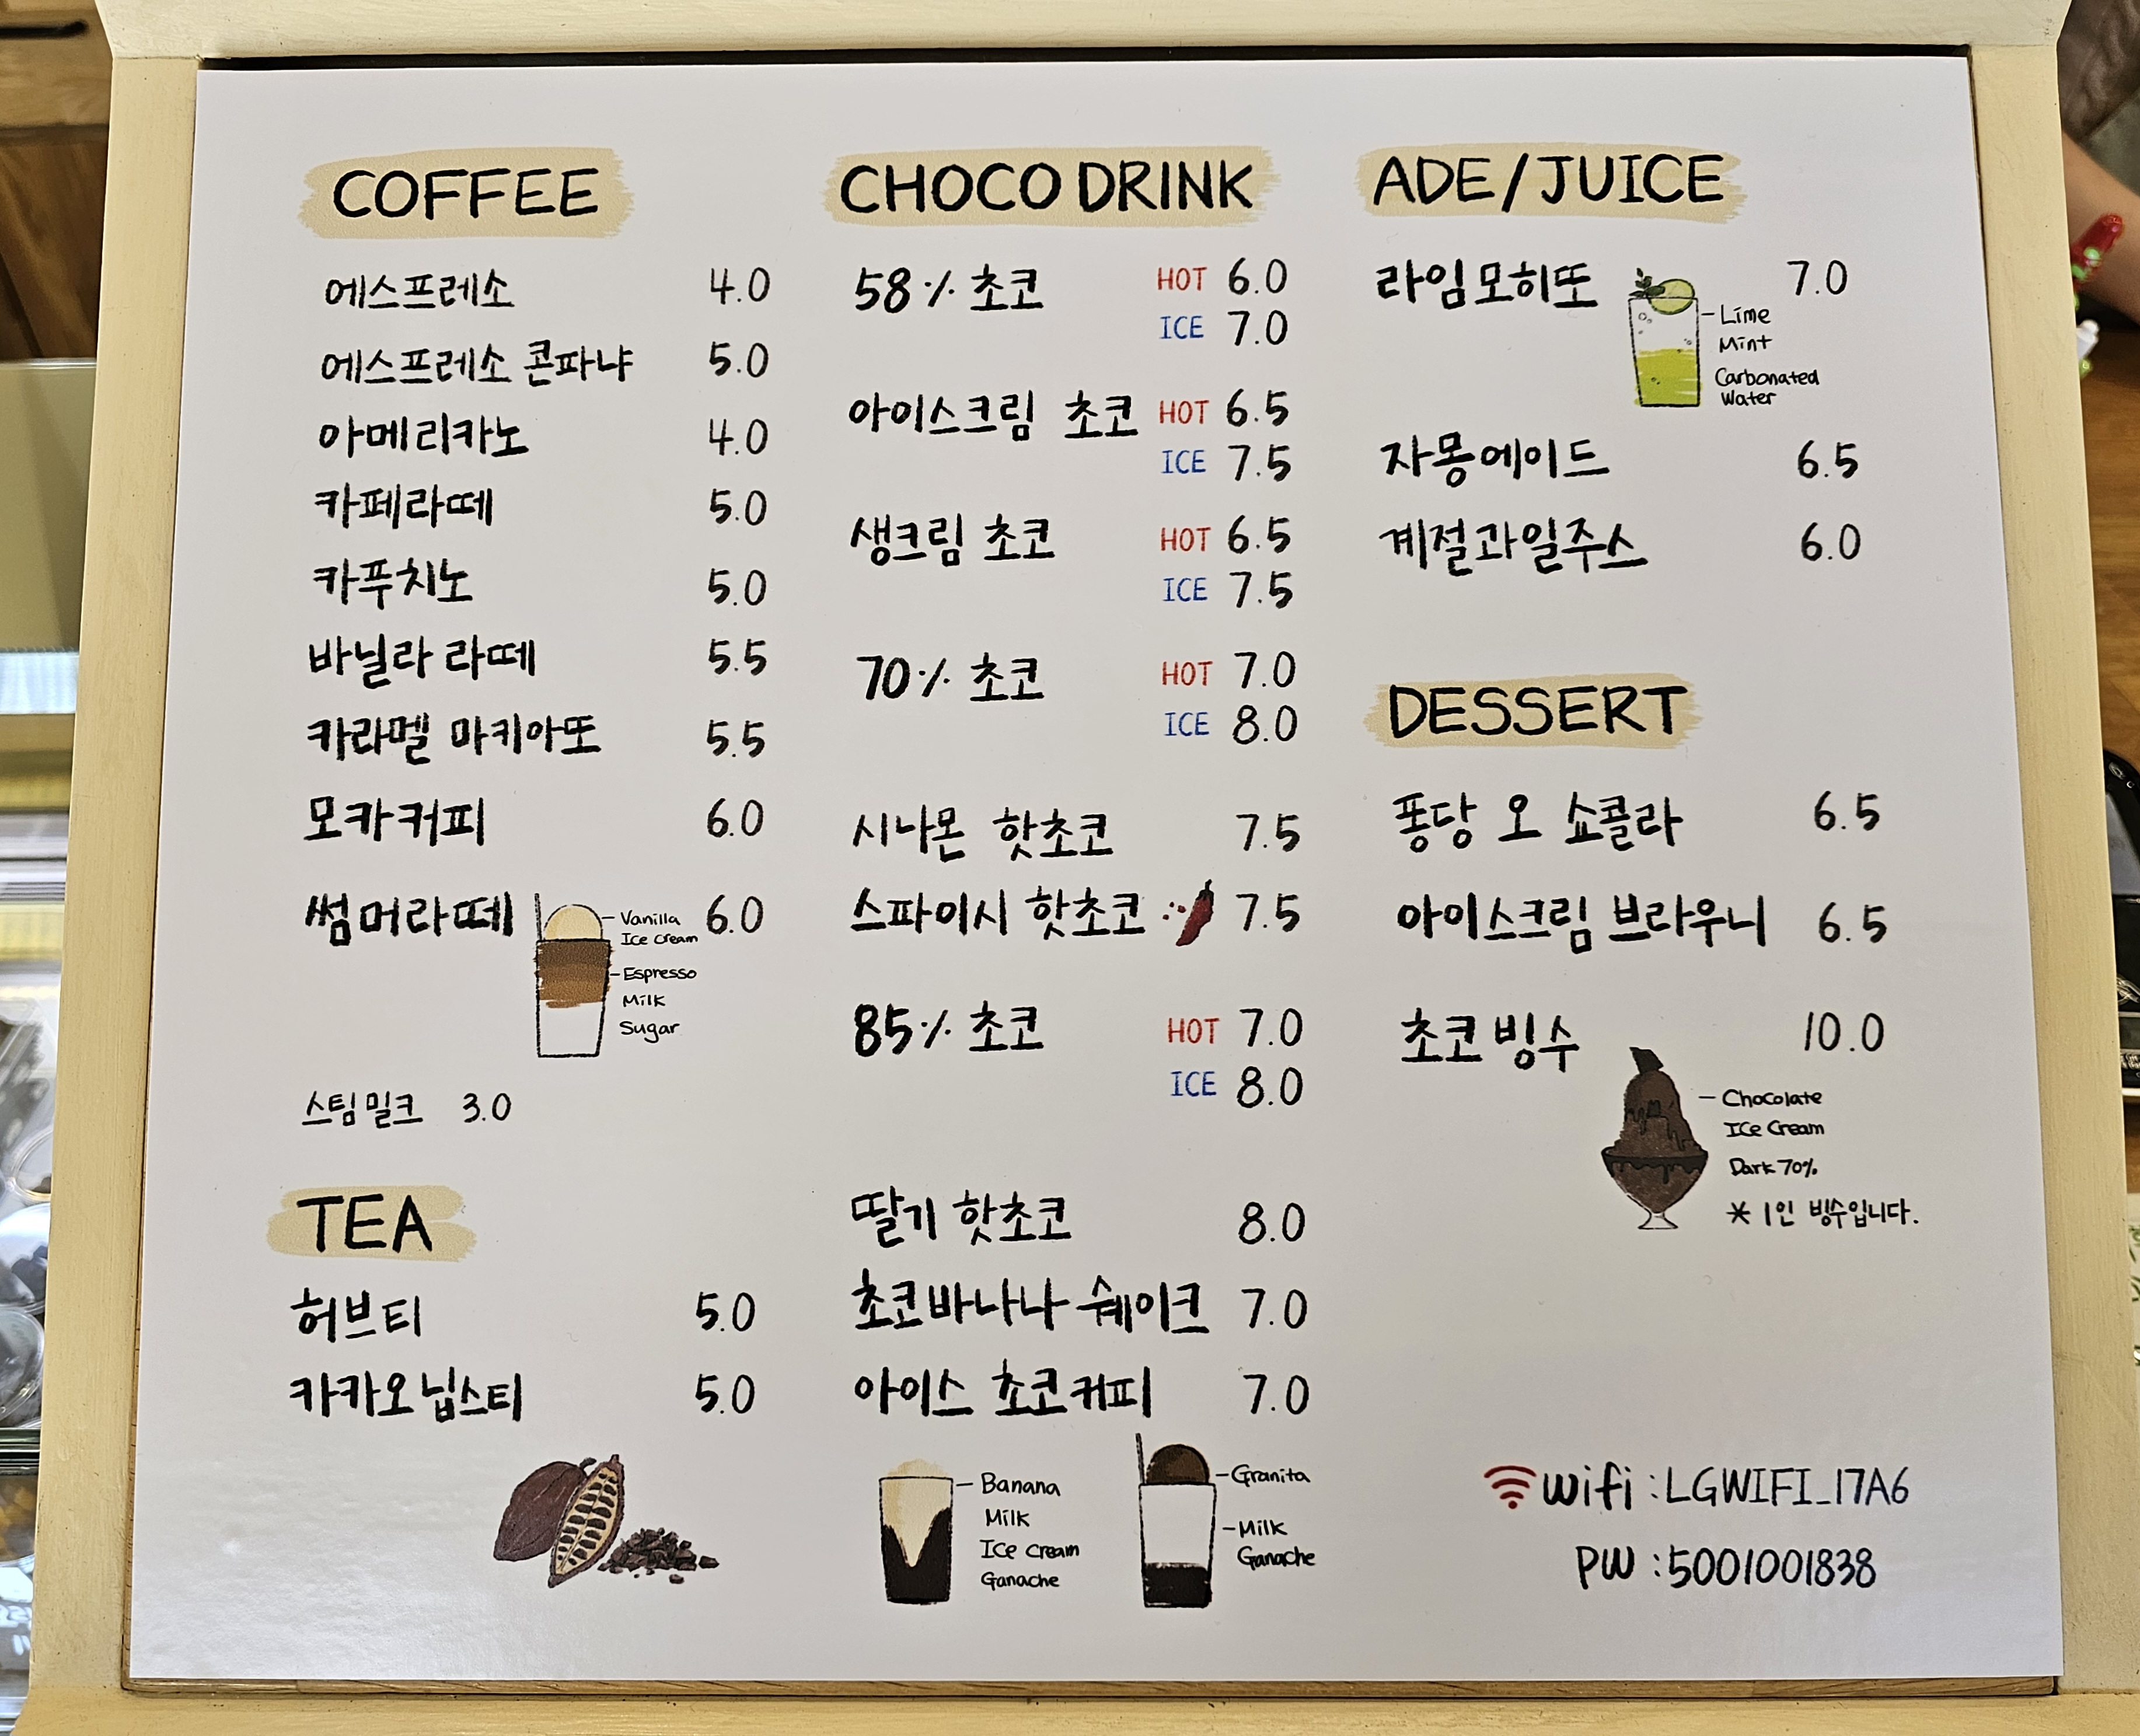 COFFEE
에스프레소 4.0
에스프레소 콘파냐 5.0
아메리카노 4.0
카페라떼 5.0
카푸치노 5.0
바닐라 라떼 5.5
카라멜 마키아또 5.5
모카커피 6.0
썸머라떼 6.0
Vanilla
Ice Cream
Espresso
Milk
Sugar
스팀밀크 3.0
TEA
허브티 5.0
카카오닙스티 5.0
CHOCO DRINK
58% 초코 HOT 6.0
ICE 7.0
아이스크림 초코 HOT 6.5
ICE 7.5
생크림 초코 HOT 6.5
ICE 7.5
70% 초코 HOT 7.0
ICE 8.0
시나몬 핫초코 7.5
스파이시 핫초코 7.5
85% 초코 HOT 7.0
ICE 8.0
딸기 핫초코 8.0
초코바나나 쉐이크 7.0
아이스 초코커피 7.0
Banana
Milk
Ice Cream
Ganache
Granita
Milk
Ganache
ADE/JUICE
라임모히또 7.0
Lime
Mint
Carbonated
Water
자몽에이드 6.5
계절과일주스 6.0
DESSERT
퐁당 오 쇼콜라 6.5
아이스크림 브라우니 6.5
초코빙수 10.0
Chocolate
Ice Cream
Dark 70%
* 1인 빙수입니다.
wifi : LGWIFI_17A6
PW : 5001001838